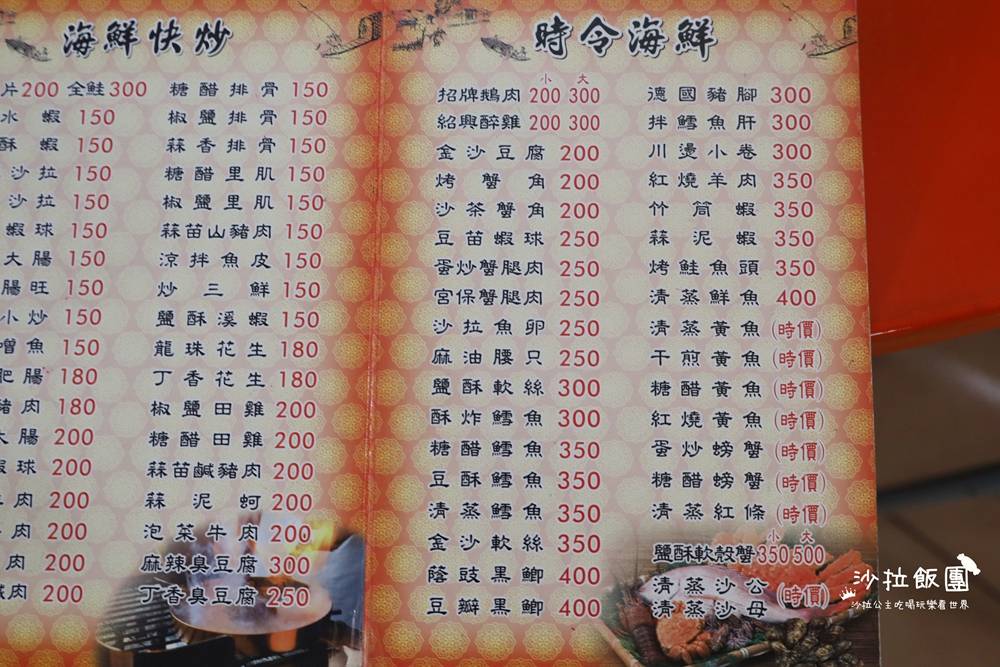 海鮮快炒
片200 全鮭300
水蝦 150
酥蝦 150
沙拉 150
沙拉 150
蝦球 150
大腸 150
腸旺 150
小炒 150
噌魚 150
肥腸 180
豬肉 180
大腸 200
蝦球 200
肉 200
肉 200
肉 200
鹹肉 200
糖醋排骨 150
椒鹽排骨 150
蒜香排骨 150
糖醋里肌 150
椒鹽里肌 150
蒜苗山豬肉 150
涼拌魚皮 150
炒三鮮 150
鹽酥溪蝦 150
龍珠花生 180
丁香花生 180
椒鹽田雞 200
糖醋田雞 200
蒜苗鹹豬肉 200
蒜泥蚵 200
泡菜牛肉 200
麻辣臭豆腐 300
丁香臭豆腐 250
時令海鮮
小 大
招牌鵝肉 200 300
紹興醉雞 200 300
金沙豆腐 200
烤蟹角 200
沙茶蟹角 200
豆苗蝦球 250
蛋炒蟹腿肉 250
宮保蟹腿肉 250
沙拉魚卵 250
麻油腰只 250
鹽酥軟絲 300
酥炸鱈魚 300
糖醋鱈魚 350
豆酥鱈魚 350
清蒸鱈魚 350
金沙軟絲 350
蔭豉黑鯽 400
豆瓣黑鯽 400
德國豬腳 300
拌鱈魚肝 300
川燙小卷 300
紅燒羊肉 350
竹筒蝦 350
蒜泥蝦 350
烤鮭魚頭 350
清蒸鮮魚 400
清蒸黃魚 (時價)
干煎黃魚 (時價)
糖醋黃魚 (時價)
紅燒黃魚 (時價)
蛋炒螃蟹 (時價)
糖醋螃蟹 (時價)
清蒸紅條 (時價)
小 大
鹽酥軟殼蟹 350 500
清蒸沙公
清蒸沙母 (時價)
沙拉飯團
沙拉公主吃喝玩樂看世界